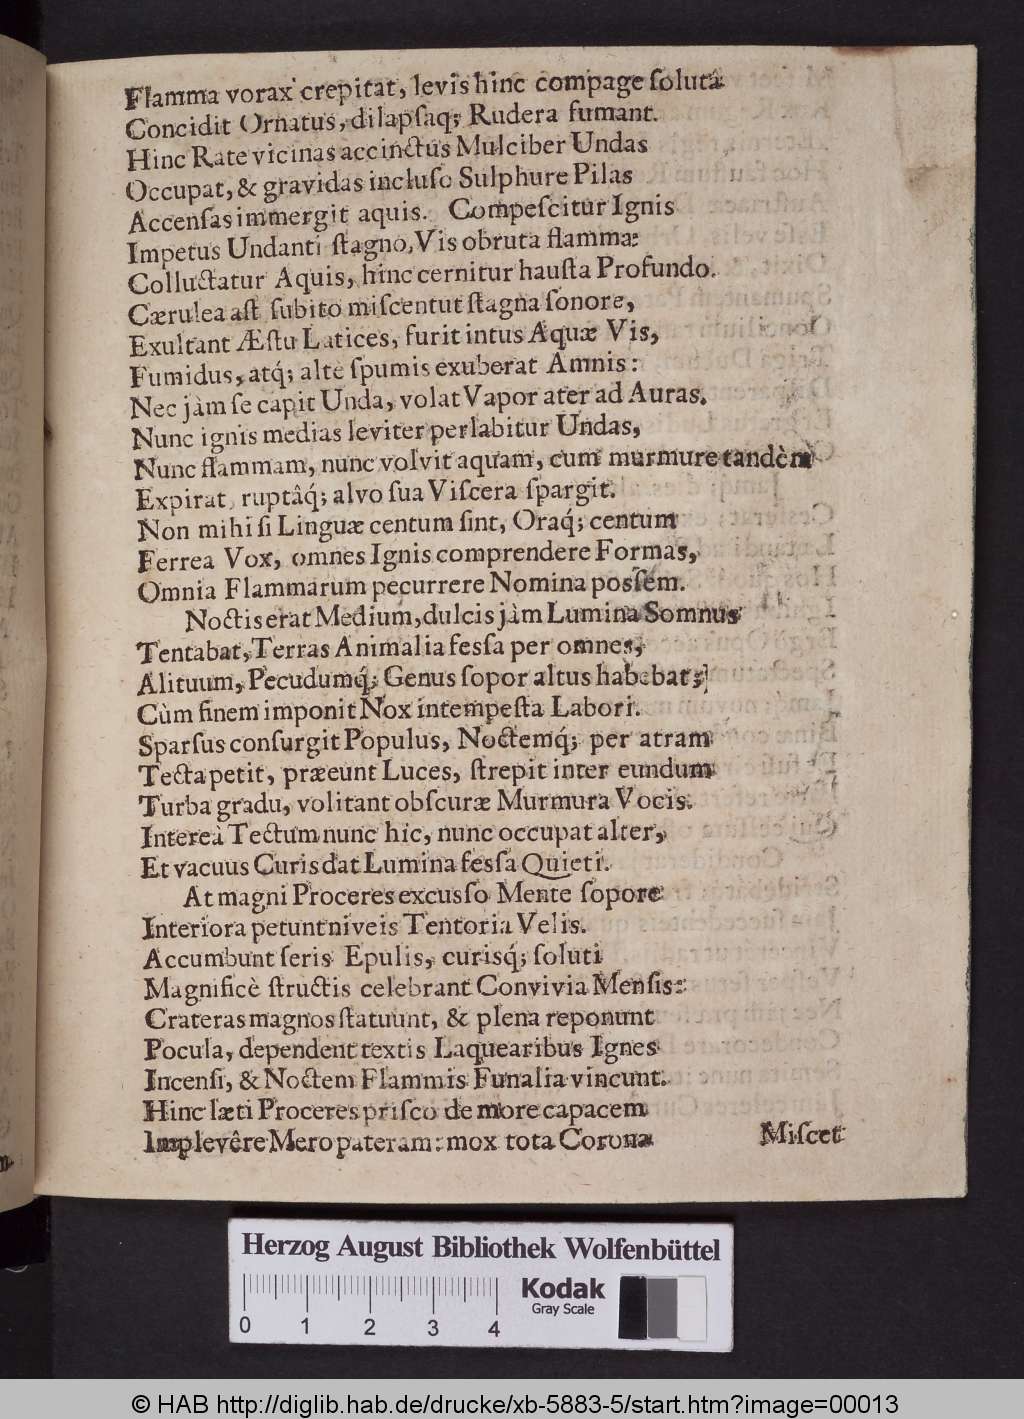 Flamma vorax crepitat, levis hinc compage ſoluta
Concidit Ornatus, dilapſaq; Rudera fumant.
Hinc Rate vicinas accinctus Mulciber Undas
Occupat, & gravidas incluſo Sulphure Pilas
Accenſas immergit aquis. Compeſcitur Ignis
Impetus Undanti ſtagno, Vis obruta flammæ
Colluctatur Aquis, hinc cernitur hauſta Profundo.
Cærulea aſt ſubito miſcentut ſtagna ſonore,
Exultant Æſtu Latices, furit intus Aquæ Vis,
Fumidus, atq́; altè ſpumis exuberat Amnis:
Nec jàm ſe capit Unda, volat Vapor ater ad Auras.
Nunc ignis medias leviter perlabitur Undas,
Nunc flammam, nunc volvit aquam, cum murmure tandèm
Expirat, ruptâq́; alvo ſua Viſcera ſpargit.
Non mihi ſi Linguæ centum ſint, Oraq́; centum
Ferrea Vox, omnes Ignis comprendere Formas,
Omnia Flammarum pecurrere Nomina poſſem.
Noctis erat Medium, dulcis jàm Lumina Somnus
Tentabat, Terras Animalia feſſa per omnes,
Alituum, Pecudumq́; Genus ſopor altus habebat;
Cùm finem imponit Nox intempeſta Labori.
Sparſus conſurgit Populus, Noctemq́; per atram
Tecta petit, præeunt Luces, ſtrepit inter eundum
Turba gradu, volitant obſcuræ Murmura Vocis.
Intereà Tectum nunc hic, nunc occupat alter,
Et vacuus Curis dat Lumina feſſa Quieti.
At magni Proceres excuſſo Mente ſopore
Interiora petunt niveis Tentoria Velis.
Accumbunt ſeris Epulis, curisq́; ſoluti
Magnificè ſtructis celebrant Convivia Menſis:
Crateras magnos ſtatuunt, & plena reponunt
Pocula, dependent textis Laquearibus Ignes
Incenſi, & Noctem Flammis Funalia vincunt.
Hinc læti Proceres priſco de more capacem
Implevêre Mero pateram: mox tota Corona
Miſcet
Herzog August Bibliothek Wolfenbüttel
Kodak
Gray Scale
0 1 2 3 4
© HAB http://diglib.hab.de/drucke/xb-5883-5/start.htm?image=00013